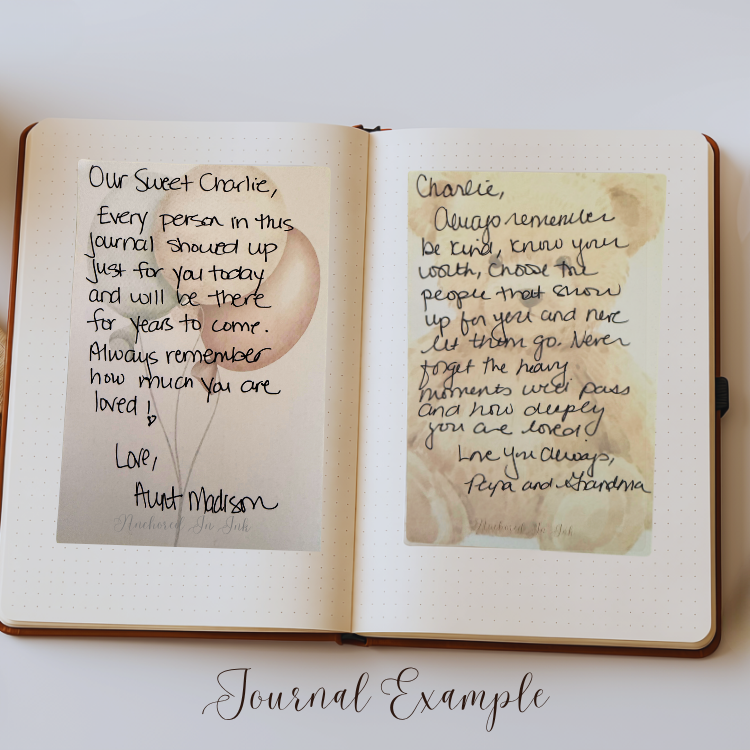 Our Sweet Charlie,
Every person in this
journal showed up
just for you today
and will be there
for years to come.
Always remember
how much you are
loved!
Love,
Aunt Madison
Anchored In Ink
Charlie,
Always remember
be kind, know your
worth, choose the
people that show
up for you and
let them go. Never
forget the heavy
moments will pass
and how deeply
you are loved!
Love you always,
Papa and Grandma
Anchored In Ink
Journal Example